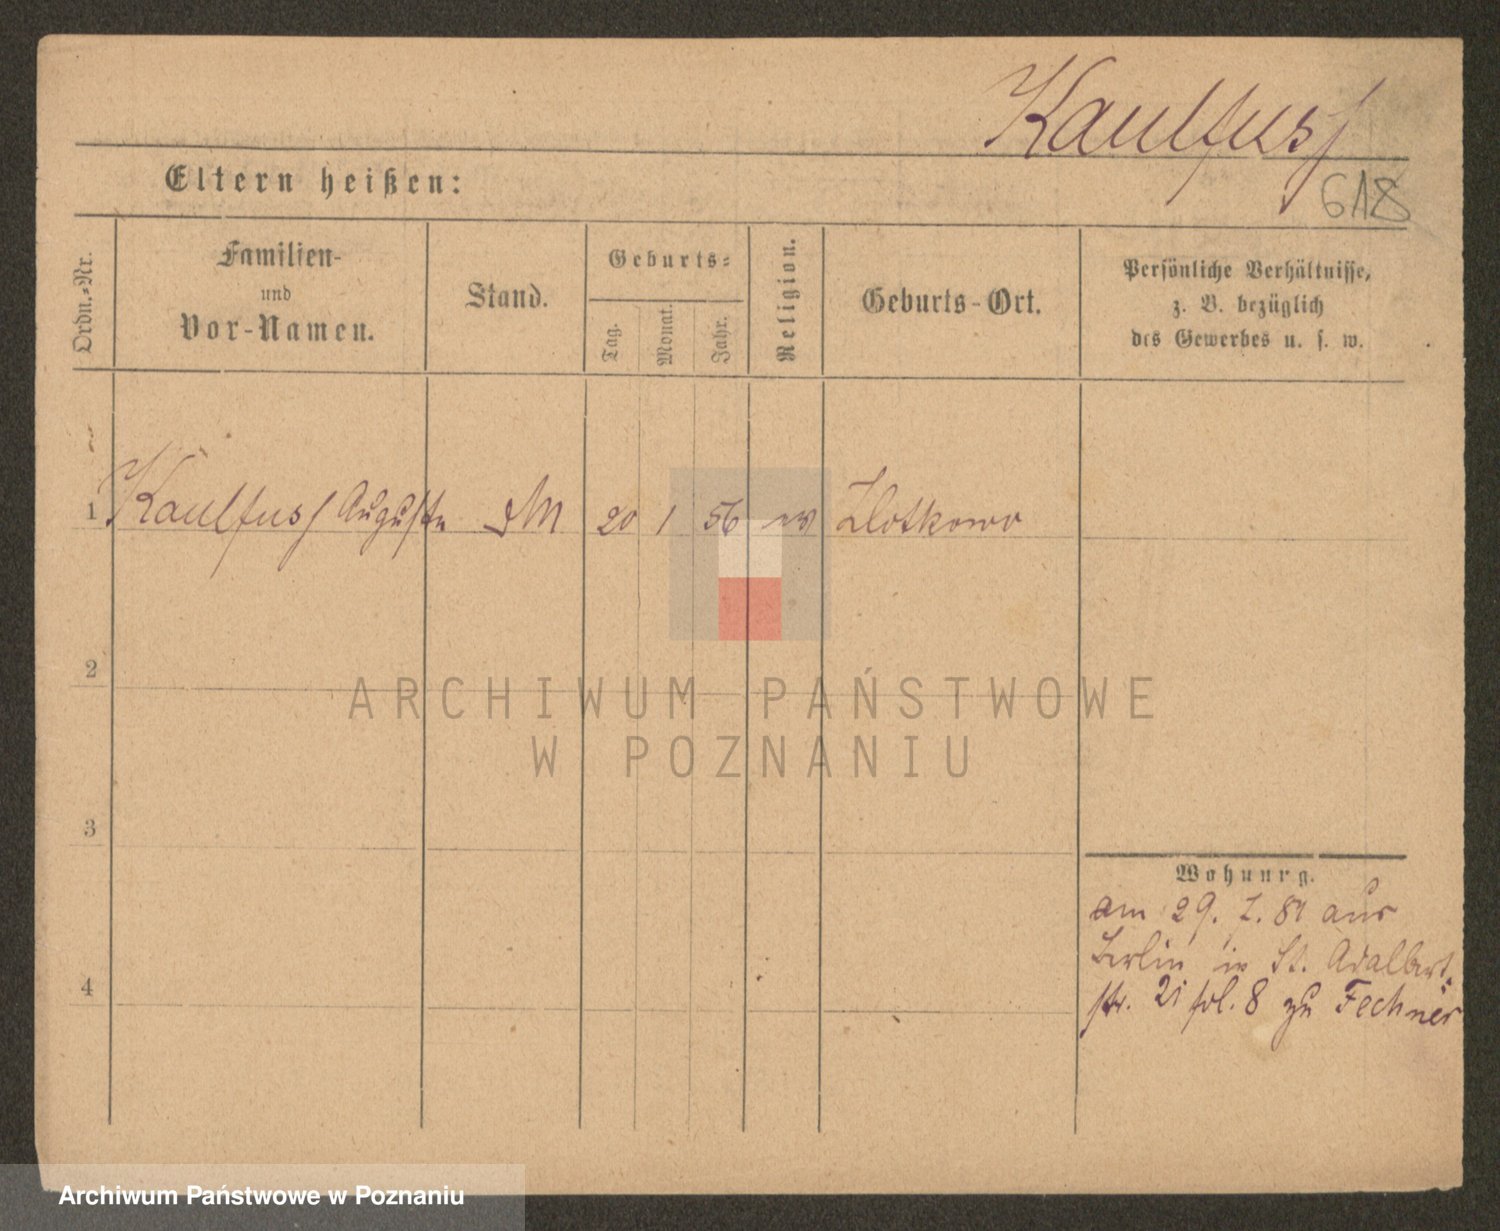 Kaulfuss
618
Eltern heißen:
Ordn.-Nr.
Familien-
und
Vor-Namen.
Stand.
Geburts-
Tag.
Monat.
Jahr.
Religion.
Geburts-Ort.
Persönliche Verhältnisse,
z. B. bezüglich
des Gewerbes u. s. w.
1 Kaulfuss Auguste 20 1 56 ev Zlotkowo
2
3
4
Wohnung.
am 29. 7. 81 aus
Berlin in St. Adalbert
str. 21 fol. 8 zu Fechner
ARCHIWUM PAŃSTWOWE
W POZNANIU
Archiwum Państwowe w Poznaniu